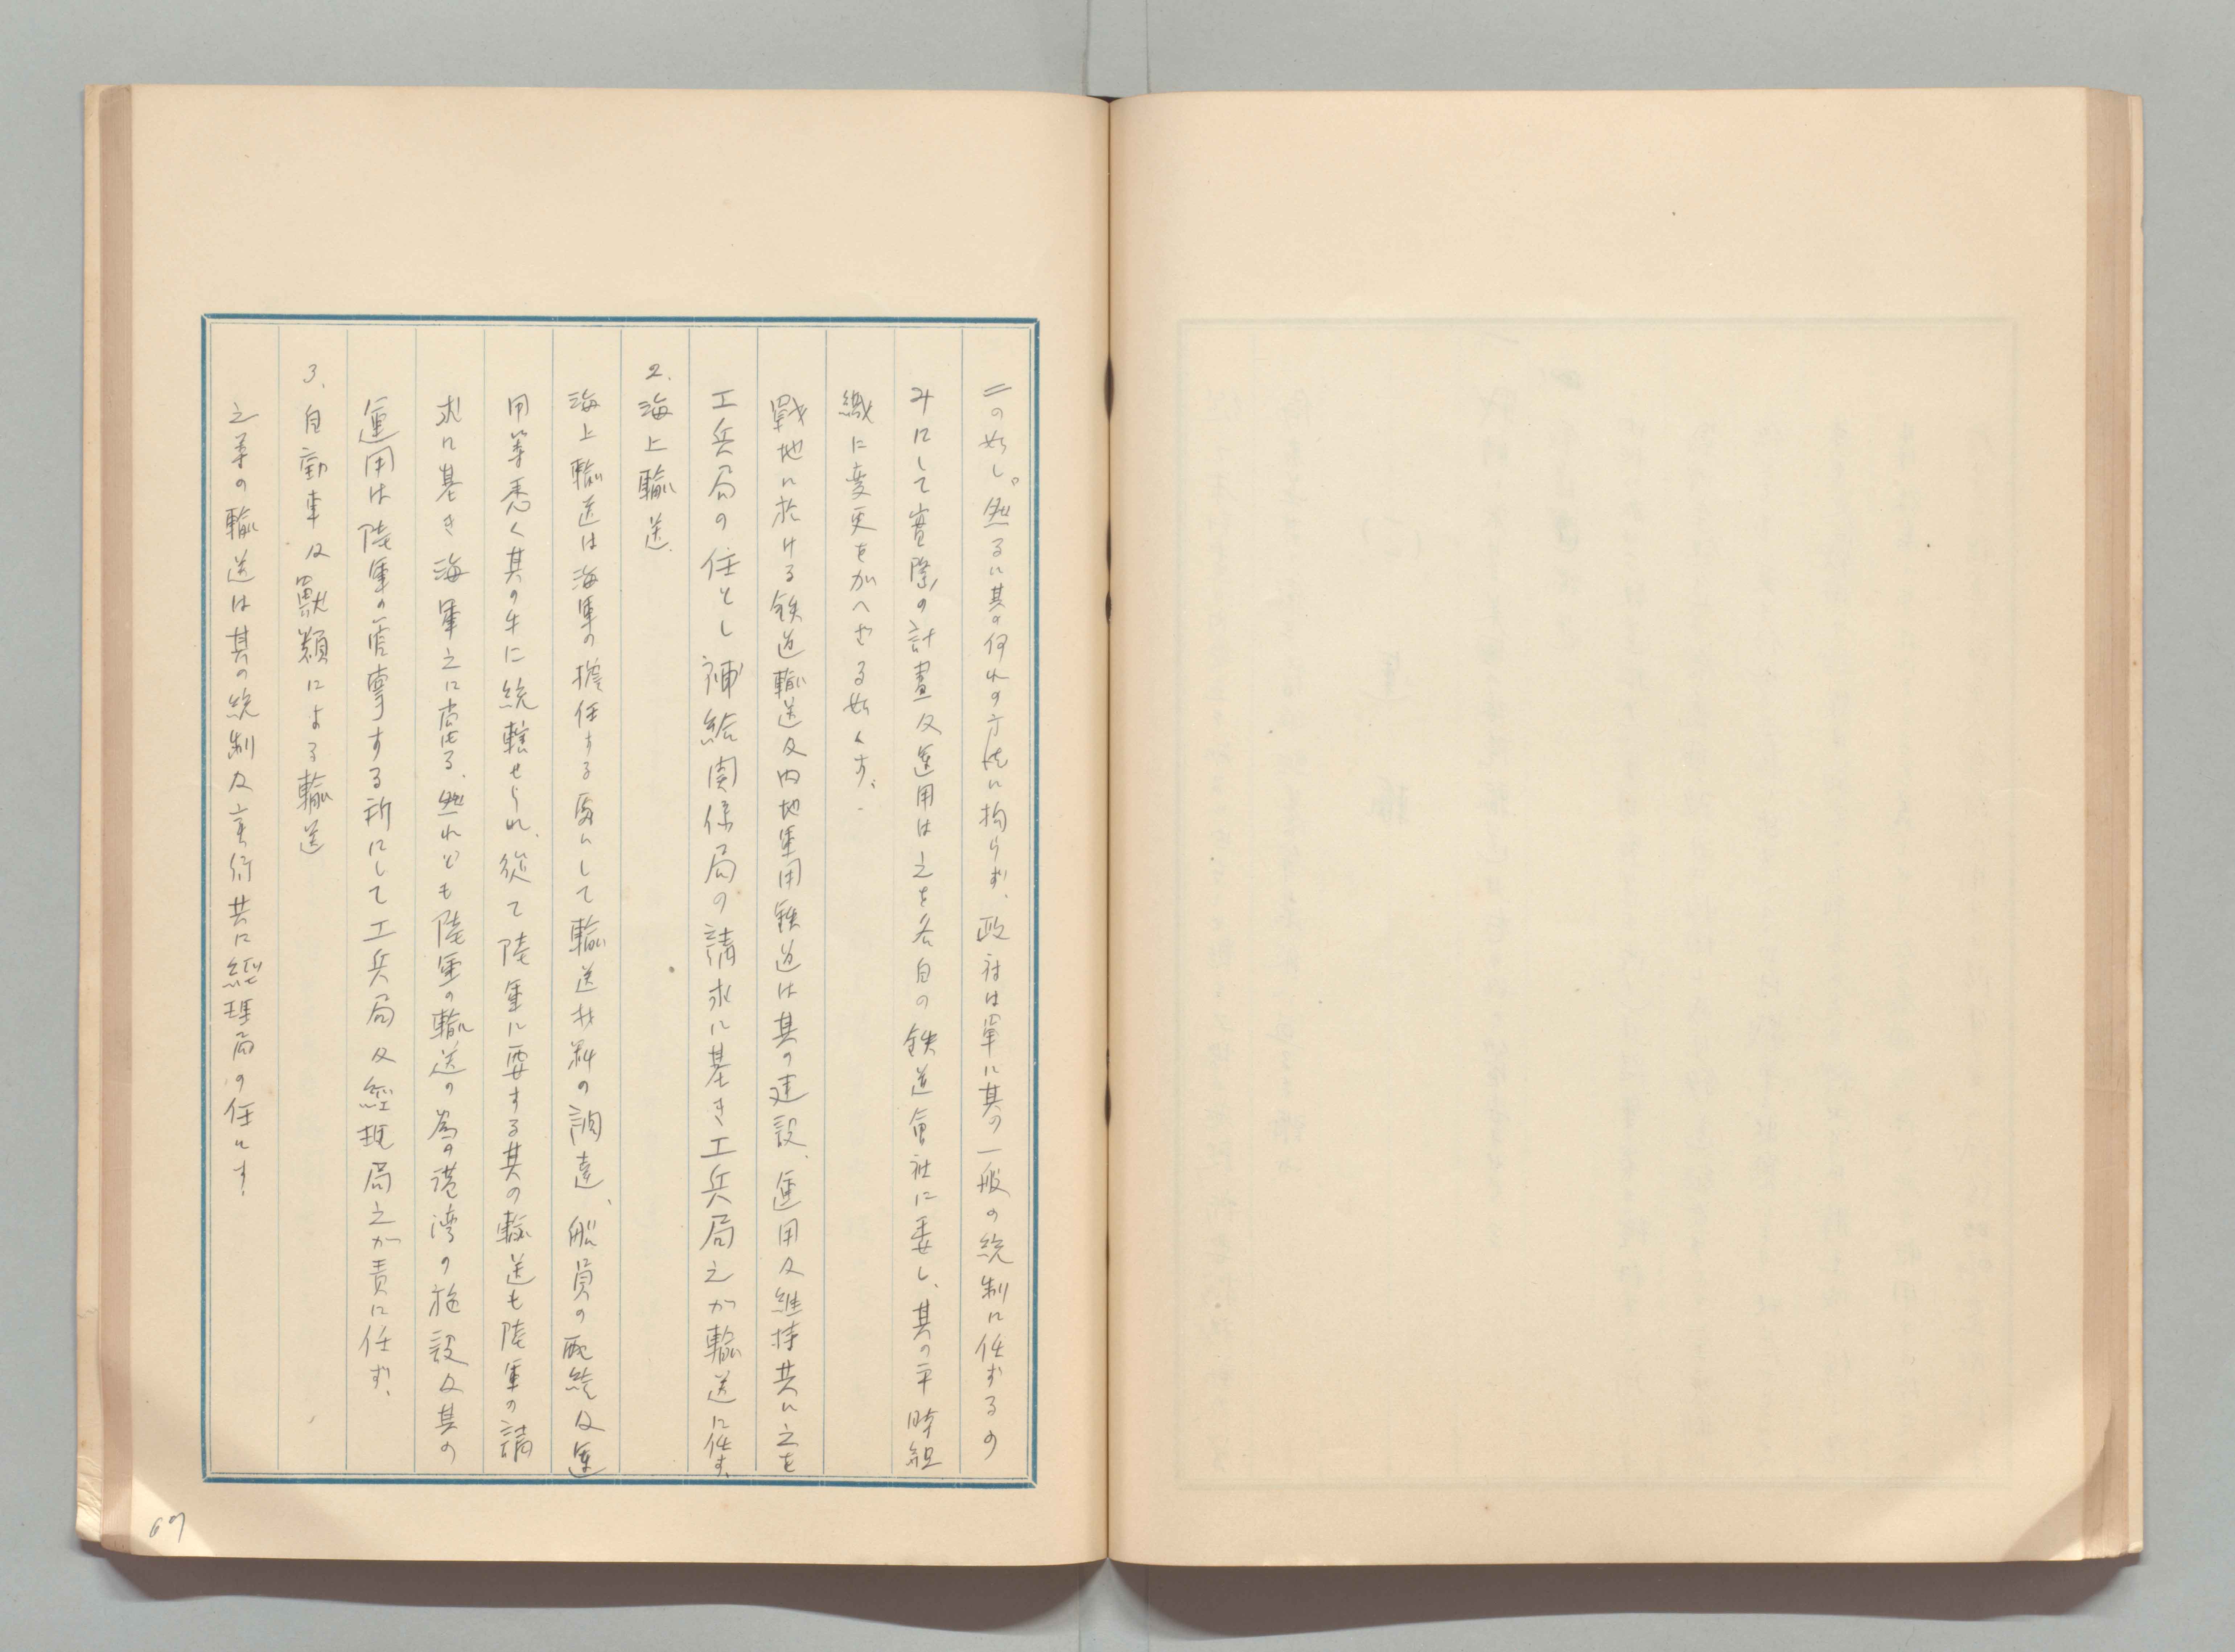 二の如し。然るに其の何れの方法に拘らず、政府は単に其の一般の統制に任ずるの
みにして實際の計畫及運用は之を各自の鉄道會社に委し、其の平時組
織に変更を加へざる如くす、
戰地に於ける鉄道輸送及内地軍用鉄道は其の建設、運用及維持共に之を
工兵局の任とし補給関係局の請求に基き工兵局之が輸送に任す、
2. 海上輸送
海上輸送は海軍の擔任する處にして輸送材料の調達、船員の配給及運
用等悉く其の手に統轄せられ、從て陸軍に要する其の輸送も陸軍の請
求に基き海軍之に當る、然れども陸軍の輸送の為の港湾の施設及其の
運用は陸軍の管掌する所にして工兵局及經理局之が責に任ず、
3. 自動車及獸類による輸送
之等の輸送は其の統制及実行共に経理局の任とす、
69